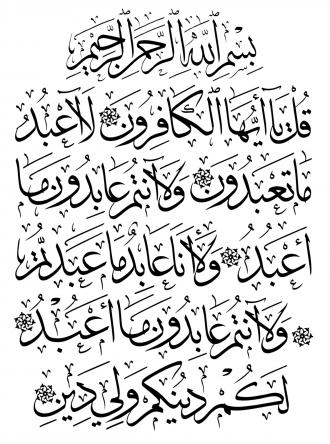 بسم الله الرحمن الرحيم
قل يا أيها الكافرون ۞ لا أعبد
ما تعبدون ۞ ولا أنتم عابدون ما
أعبد ۞ ولا أنا عابد ما عبدتم
۞ ولا أنتم عابدون ما أعبد ۞
لكم دينكم ولي دين ۞